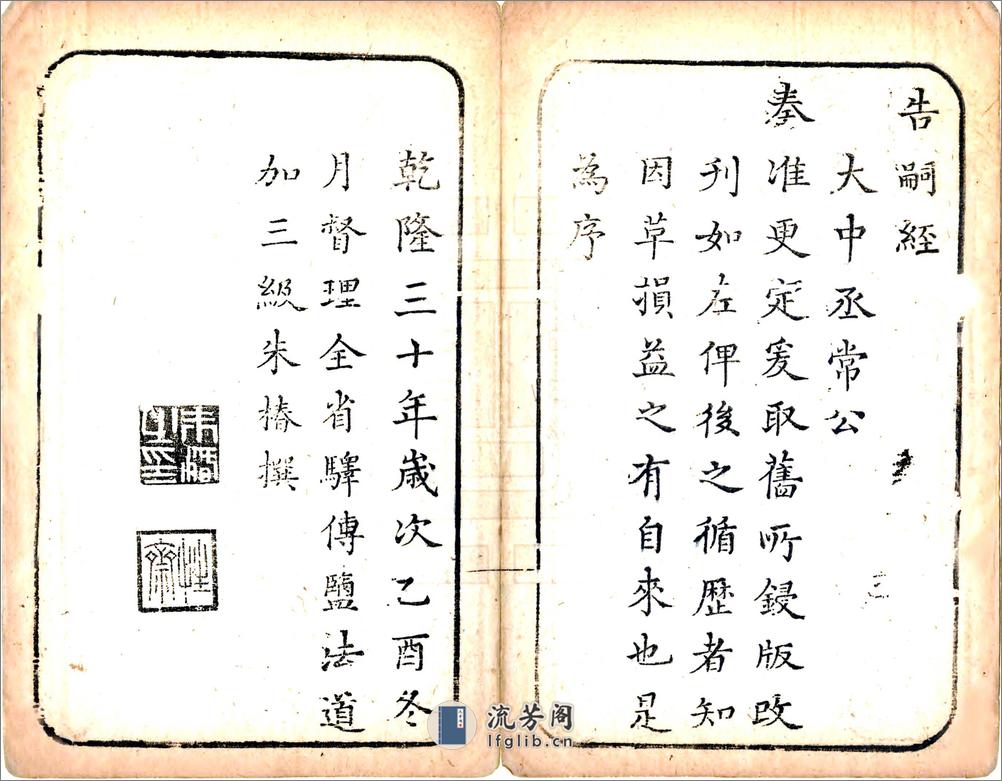 告嗣經
大中丞常公
奏
准更定爰取舊所鋟版改
刊如左俾後之循歷者知
因革損益之有自來也是
為序
乾隆三十年歲次乙酉冬
月督理全省驛傳鹽法道
加三級朱椿撰
流芳阁
lfglib.cn